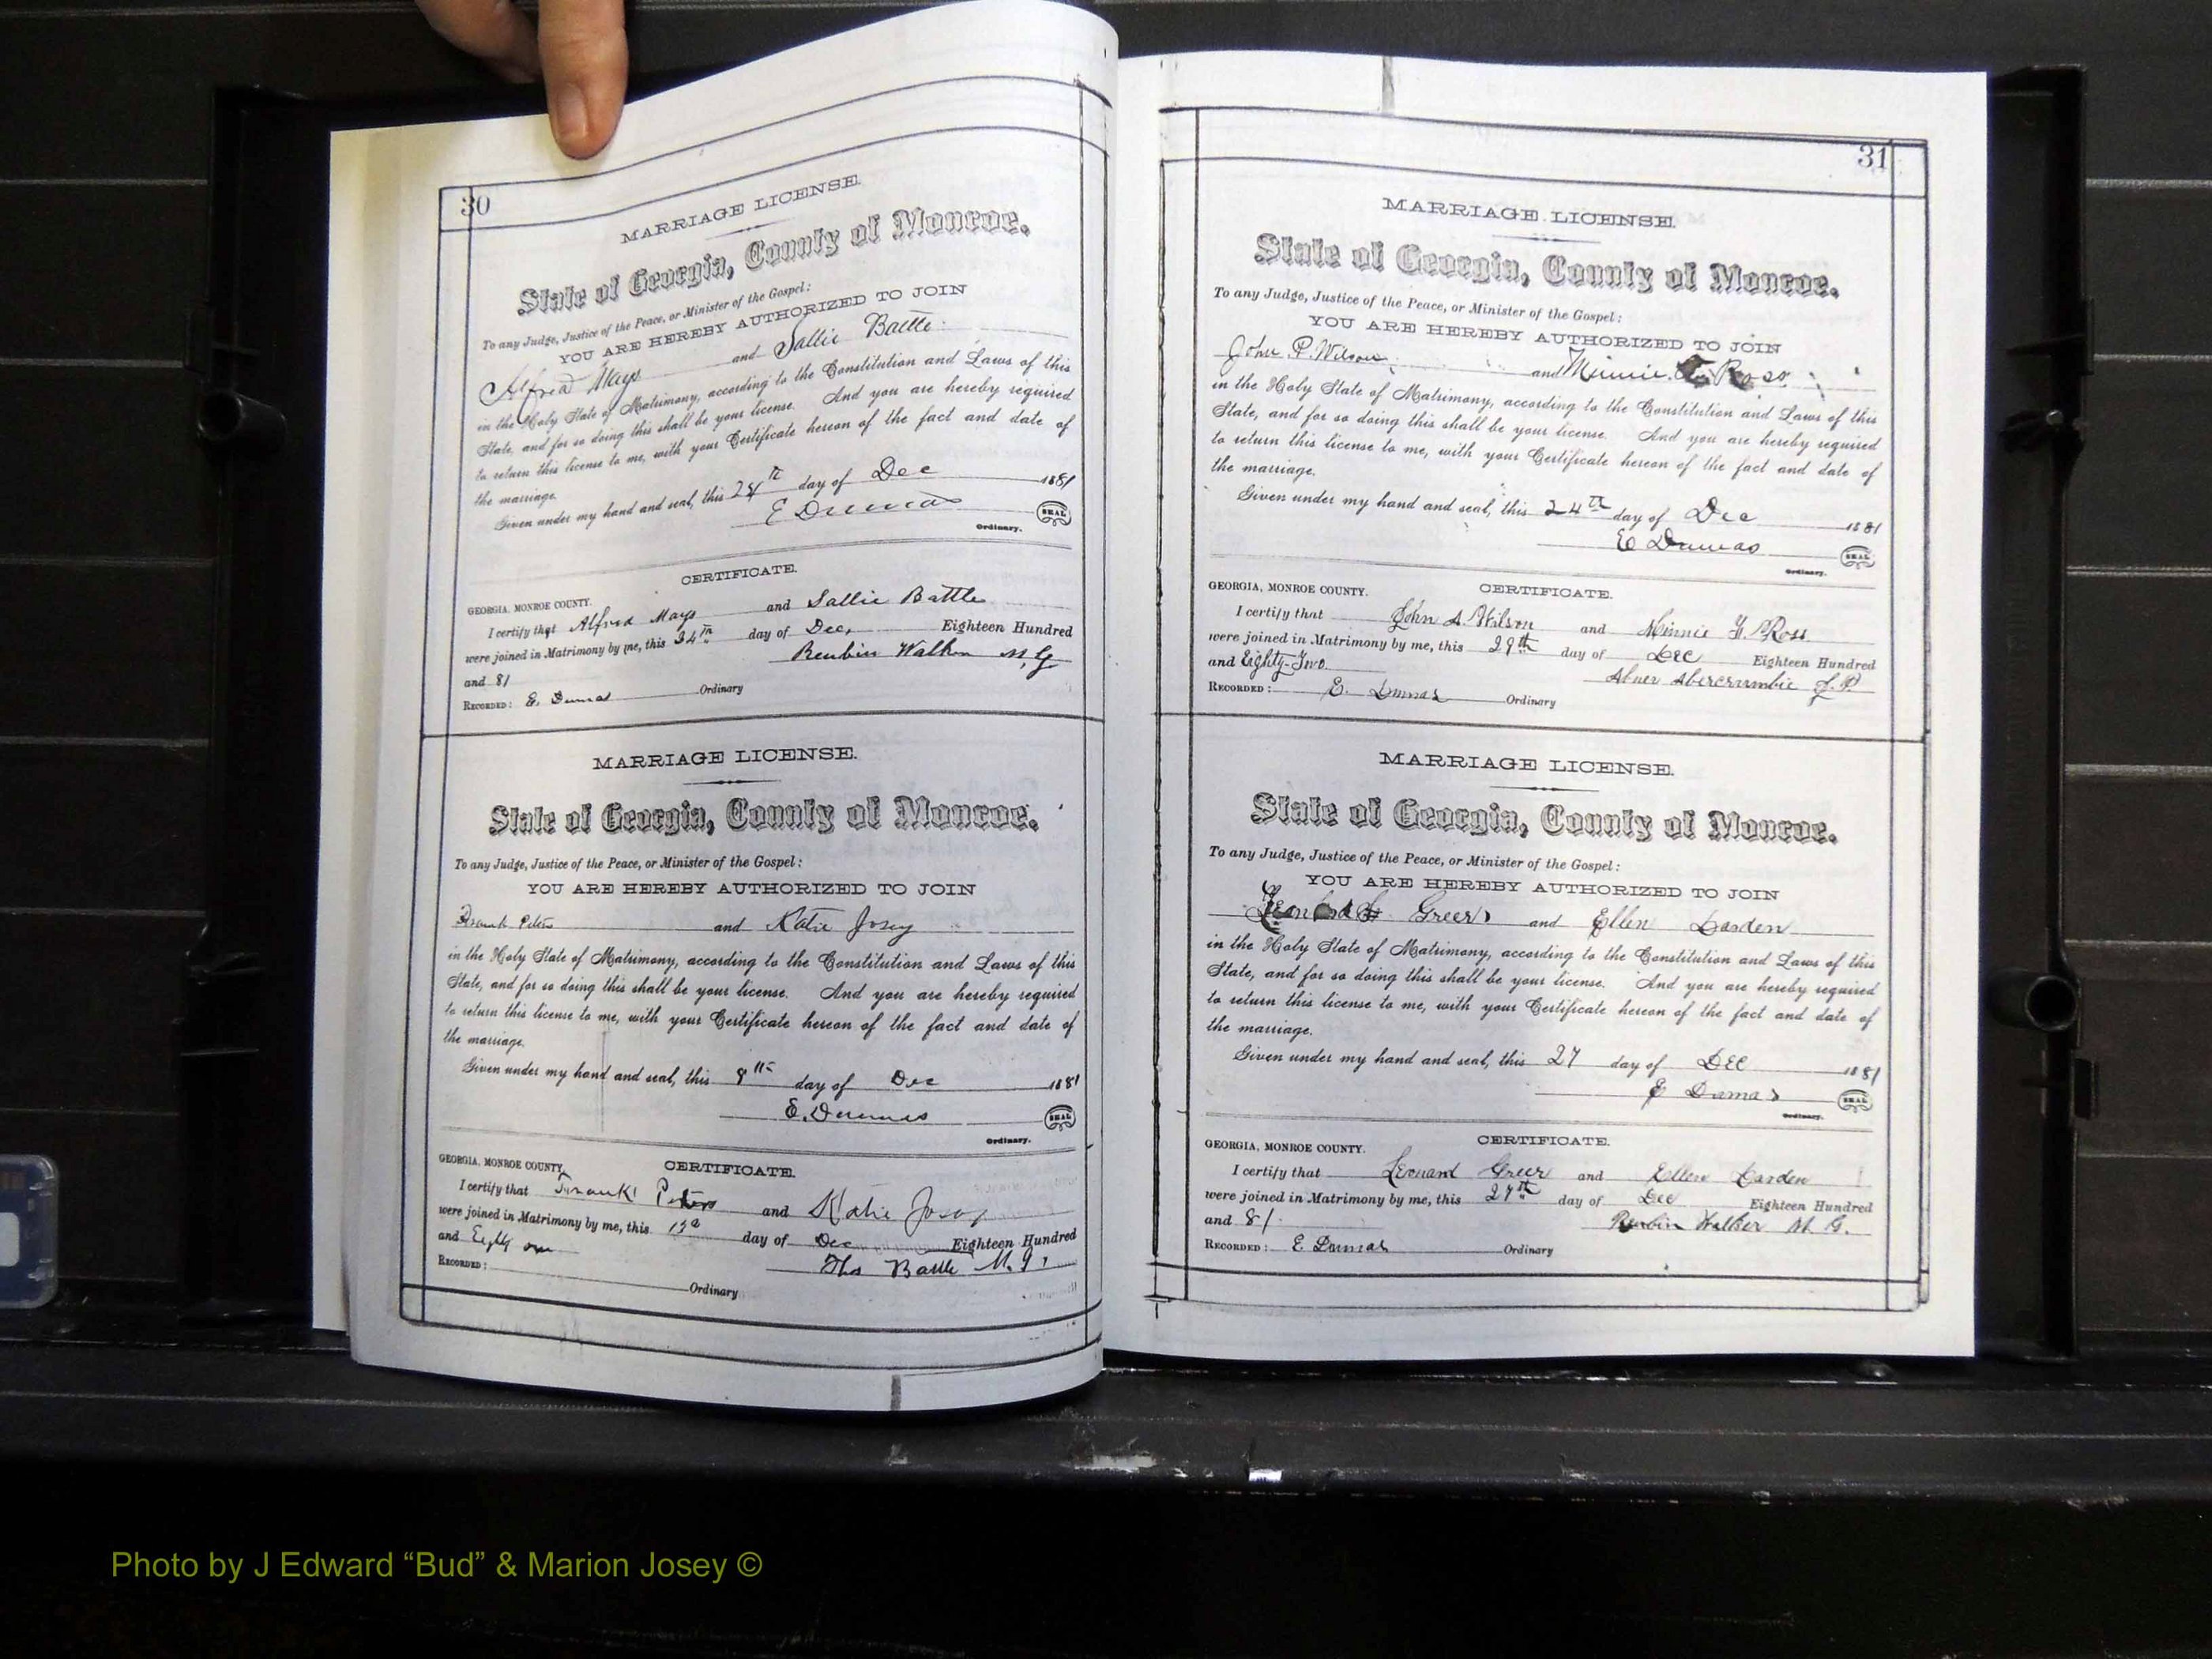 30
MARRIAGE LICENSE.
State of Georgia, County of Monroe.
To any Judge, Justice of the Peace, or Minister of the Gospel:
YOU ARE HEREBY AUTHORIZED TO JOIN
Alfred Mays and Sallie Battle
in the Holy State of Matrimony, according to the Constitution and Laws of this
State, and for so doing this shall be your license. And you are hereby required
to return this license to me, with your Certificate hereon of the fact and date of
the marriage.
Given under my hand and seal, this 24th day of Dec 1881
E Dumas SEAL
Ordinary.
CERTIFICATE.
GEORGIA, MONROE COUNTY.
I certify that Alfred Mays and Sallie Battle
were joined in Matrimony by me, this 24th day of Dec, Eighteen Hundred
and 81 Reubin Walker M, G
RECORDED: E. Dumas Ordinary
MARRIAGE LICENSE.
State of Georgia, County of Monroe.
To any Judge, Justice of the Peace, or Minister of the Gospel:
YOU ARE HEREBY AUTHORIZED TO JOIN
Frank Peters and Katie Josey
in the Holy State of Matrimony, according to the Constitution and Laws of this
State, and for so doing this shall be your license. And you are hereby required
to return this license to me, with your Certificate hereon of the fact and date of
the marriage.
Given under my hand and seal, this 8th day of Dec 1881
E. Dumas SEAL
Ordinary.
GEORGIA, MONROE COUNTY. CERTIFICATE.
I certify that Frank Peters and Katie Josey
were joined in Matrimony by me, this day of Dec Eighteen Hundred
and Eighty one Thos Battle M. G.
RECORDED: Ordinary
31
MARRIAGE LICENSE.
State of Georgia, County of Monroe.
To any Judge, Justice of the Peace, or Minister of the Gospel:
YOU ARE HEREBY AUTHORIZED TO JOIN
John P. Wilson and Minnie Ross
in the Holy State of Matrimony, according to the Constitution and Laws of this
State, and for so doing this shall be your license. And you are hereby required
to return this license to me, with your Certificate hereon of the fact and date of
the marriage.
Given under my hand and seal, this 24th day of Dec 1881
E Dumas SEAL
Ordinary.
GEORGIA, MONROE COUNTY. CERTIFICATE.
I certify that John A. Wilson and Minnie Ross
were joined in Matrimony by me, this 29th day of Dec Eighteen Hundred
and Eighty-Two Abner Abercrumbie J. P.
RECORDED: E. Dumas Ordinary
MARRIAGE LICENSE.
State of Georgia, County of Monroe.
To any Judge, Justice of the Peace, or Minister of the Gospel:
YOU ARE HEREBY AUTHORIZED TO JOIN
Greer and Ellen Darden
in the Holy State of Matrimony, according to the Constitution and Laws of this
State, and for so doing this shall be your license. And you are hereby required
to return this license to me, with your Certificate hereon of the fact and date of
the marriage.
Given under my hand and seal, this 27 day of Dec 1881
E Dumas SEAL
Ordinary.
GEORGIA, MONROE COUNTY. CERTIFICATE.
I certify that Leonard Greer and Ellen Darden
were joined in Matrimony by me, this 27th day of Dec Eighteen Hundred
and 81. Reubin Walker M. G.
RECORDED: E. Dumas Ordinary
Photo by J Edward “Bud” & Marion Josey ©